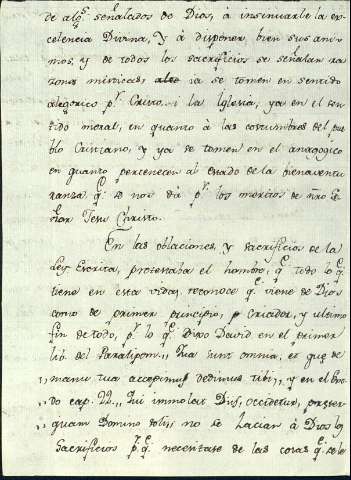 de alg.s señalados de Dios, á insinuarle la ex
celencia Divina, y á disponer bien sus ani
mos, y de todos los sacrificios se señalan ra
zones misticas, ya se tomen en sentido
alegorico p.r Cristo, i la Iglesia, ya en el sen
tido moral, en quanto á las costumbres del pue
blo Cristiano, y ya de tomen en el anagogico
en quanto pertenecen al estado de la bienaventu
ranza q.e se nos dá p.r los meritos de nŕo Se
ñor Jesu Christo.
En las oblaciones, y sacrificios de la
Ley Escrita, protestaba el hombre, q.e todo lo q.e
tiene en esta vida, reconoce q.e viene de Dios
como de primer principio, y Criador, y ultimo
fin de todo, p.r lo q.e Dixo David en el primer
lib. del Paralipom., tua sunt omnia, et quæ de
manu tua accepimus dedimus tibi, y en el Exo
do cap. 22., Qui immolat Diis, occidetur, præter
quam Domino soli, no se hacian á Dios los
Sacrificios p.r q.e necesitase de las cosas q.e se le